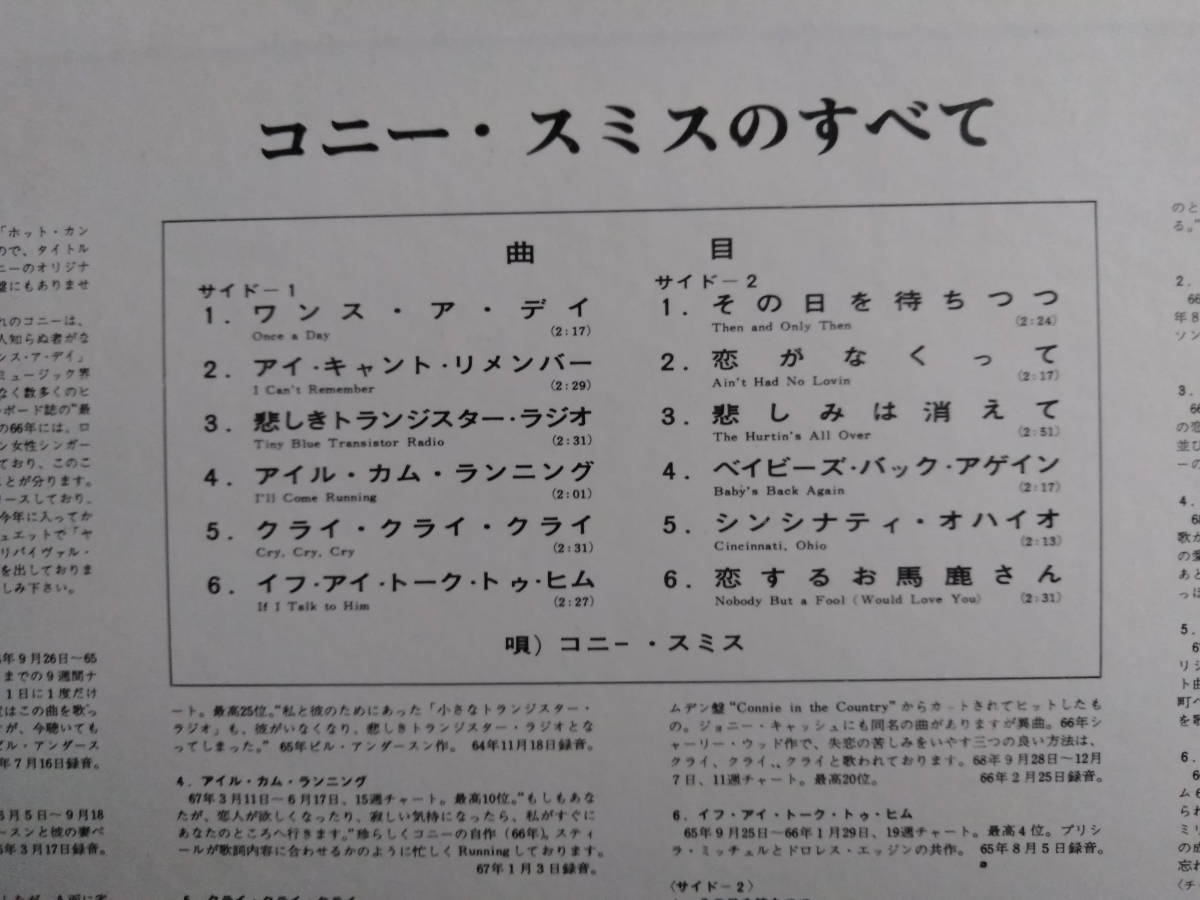 コニー・スミスのすべて
曲目
サイド－1
1. ワンス・ア・デイ
Once a Day (2:17)
2. アイ・キャント・リメンバー
I Can't Remember (2:29)
3. 悲しきトランジスター・ラジオ
Tiny Blue Transistor Radio (2:31)
4. アイル・カム・ランニング
I'll Come Running (2:01)
5. クライ・クライ・クライ
Cry, Cry, Cry (2:31)
6. イフ・アイ・トーク・トゥ・ヒム
If I Talk to Him (2:27)
サイド－2
1. その日を待ちつつ
Then and Only Then (2:24)
2. 恋がなくって
Ain't Had No Lovin (2:17)
3. 悲しみは消えて
The Hurtin's All Over (2:51)
4. ベイビーズ・バック・アゲイン
Baby's Back Again (2:17)
5. シンシナティ・オハイオ
Cincinnati, Ohio (2:13)
6. 恋するお馬鹿さん
Nobody But a Fool (Would Love You) (2:31)
唄) コニー・スミス
「ホット・カン
ので、タイトル
ニーのオリジナ
盤にもありませ
れのコニーは、
人知らぬ者がな
ンス・ア・デイ」
ミュージック界
なく数多くのヒ
ボード誌の"最
の66年には、ロ
ン女性シンガー
ており、このこ
ことが分ります。
ースしており、
今年に入ってか
ュエットで「ヤ
リバイヴァル・
を出しておりま
しみ下さい。
年9月26日～65
までの9週間ナ
1日に1度だけ
はこの曲を歌っ
が、今聴いても
ビル・アンダース
年7月16日録音。
5月5日～9月18
ースンと彼の妻ベ
年3月17日録音。
ート。最高25位。"私と彼のためにあった「小さなトランジスター・
ラジオ」も、彼がいなくなり、悲しきトランジスター・ラジオとな
ってしまった。" 65年ビル・アンダースン作。 64年11月18日録音。
4. アイル・カム・ランニング
67年3月11日～6月17日、15週チャート。最高10位。"もしもあな
たが、恋人が欲しくなったり、寂しい気持になったら、私がすぐに
あなたのところへ行きます。"珍らしくコニーの自作(66年)。スティ
ールが歌詞内容に合わせるかのように忙しくRunningしております。
67年1月3日録音。
5. クライ・クライ・クライ
ムデン盤"Connie in the Country"からカットされてヒットしたも
の。ジョニー・キャッシュにも同名の曲がありますが異曲。66年シ
ャーリー・ウッド作で、失恋の苦しみをいやす三つの良い方法は、
クライ、クライ、、クライと歌われております。68年9月28日～12月
7日、11週チャート。最高20位。 66年2月25日録音。
6. イフ・アイ・トーク・トゥ・ヒム
65年9月25日～66年1月29日、19週チャート。最高4位。プリシ
ラ・ミッチェルとドロレス・エッジンの共作。 65年8月5日録音。
〈サイド－2〉
のと
る。"
2.
66
年8
ソン
3.
66
の恋
並び
ーの
4.
68
歌か
の愛
あと
っぽ
5.
67
リシ
ト曲
町へ
を歌
6.
66
ム6
られ
ミッ
の成
忘れ
〈チ